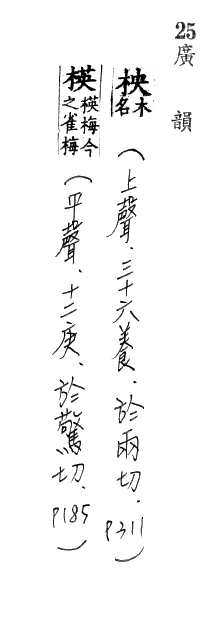 25 廣韻
柍 木名 (上聲、三十六養、於兩切、P311)
楧 楧梅今之雀梅 (平聲、十二庚、於驚切、P185)